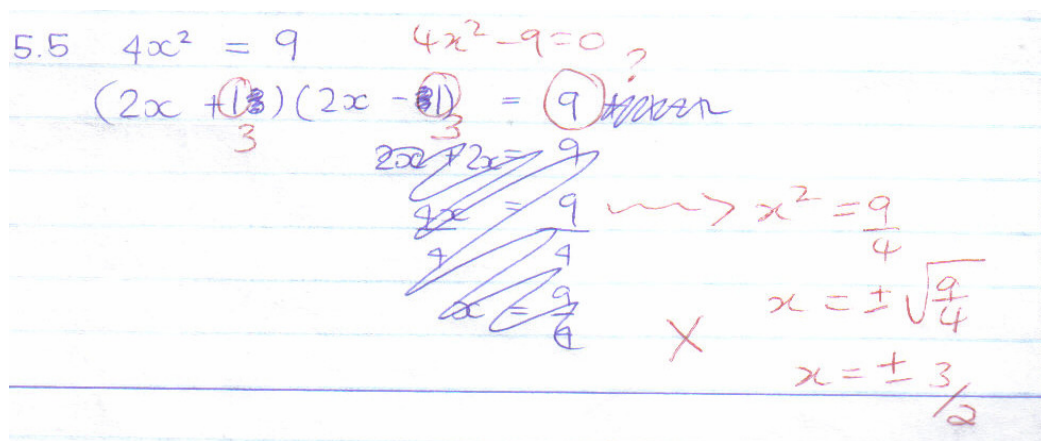 5.5 4x² = 9 4x² - 9 = 0 ?
(2x + 1)(2x - 1) = 9
3 3
2x + 2x = 9
4x = 9 ~~> x² = 9/4
4 4
x = 9/4 x = ± √9/4
X x = ± 3/2